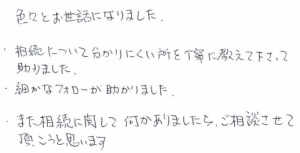 色々とお世話になりました.
・相続について分かりにくい所を丁寧に教えて下さって
助かりました.
・細かなフォローが助かりました.
・また相続に関して何かありましたら、ご相談させて
頂こうと思います